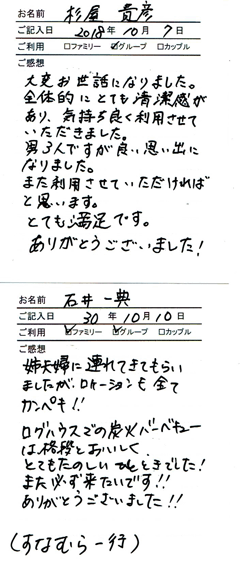 お名前 杉屋 貴彦
ご記入日 2018 年 10 月 7 日
ご利用 □ファミリー ☑グループ □カップル
ご感想
大変お世話になりました。
全体的にとても清潔感が
あり、気持ち良く利用させて
いただきました。
男3人ですが良い思い出に
なりました。
また利用させていただければ
と思います。
とても満足です。
ありがとうございました!
お名前 石井 一典
ご記入日 30 年 10 月 10 日
ご利用 ☑ファミリー ☑グループ □カップル
ご感想
姉夫婦に連れてきてもらい
ましたが、ロケーションも全て
カンペキ!!
ログハウスでの炭火バーベキュー
は格段とおいしく
とてもたのしいひとときでした!
また必ず来たいです!!
ありがとうございました!!
(すなむら一行)